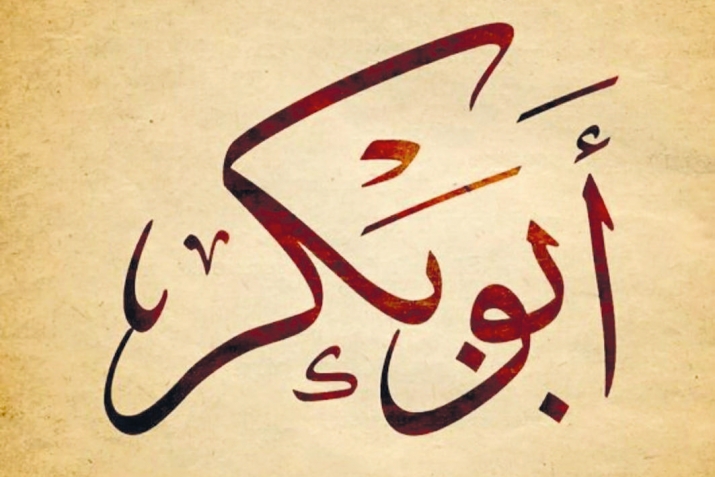 أبو بكر